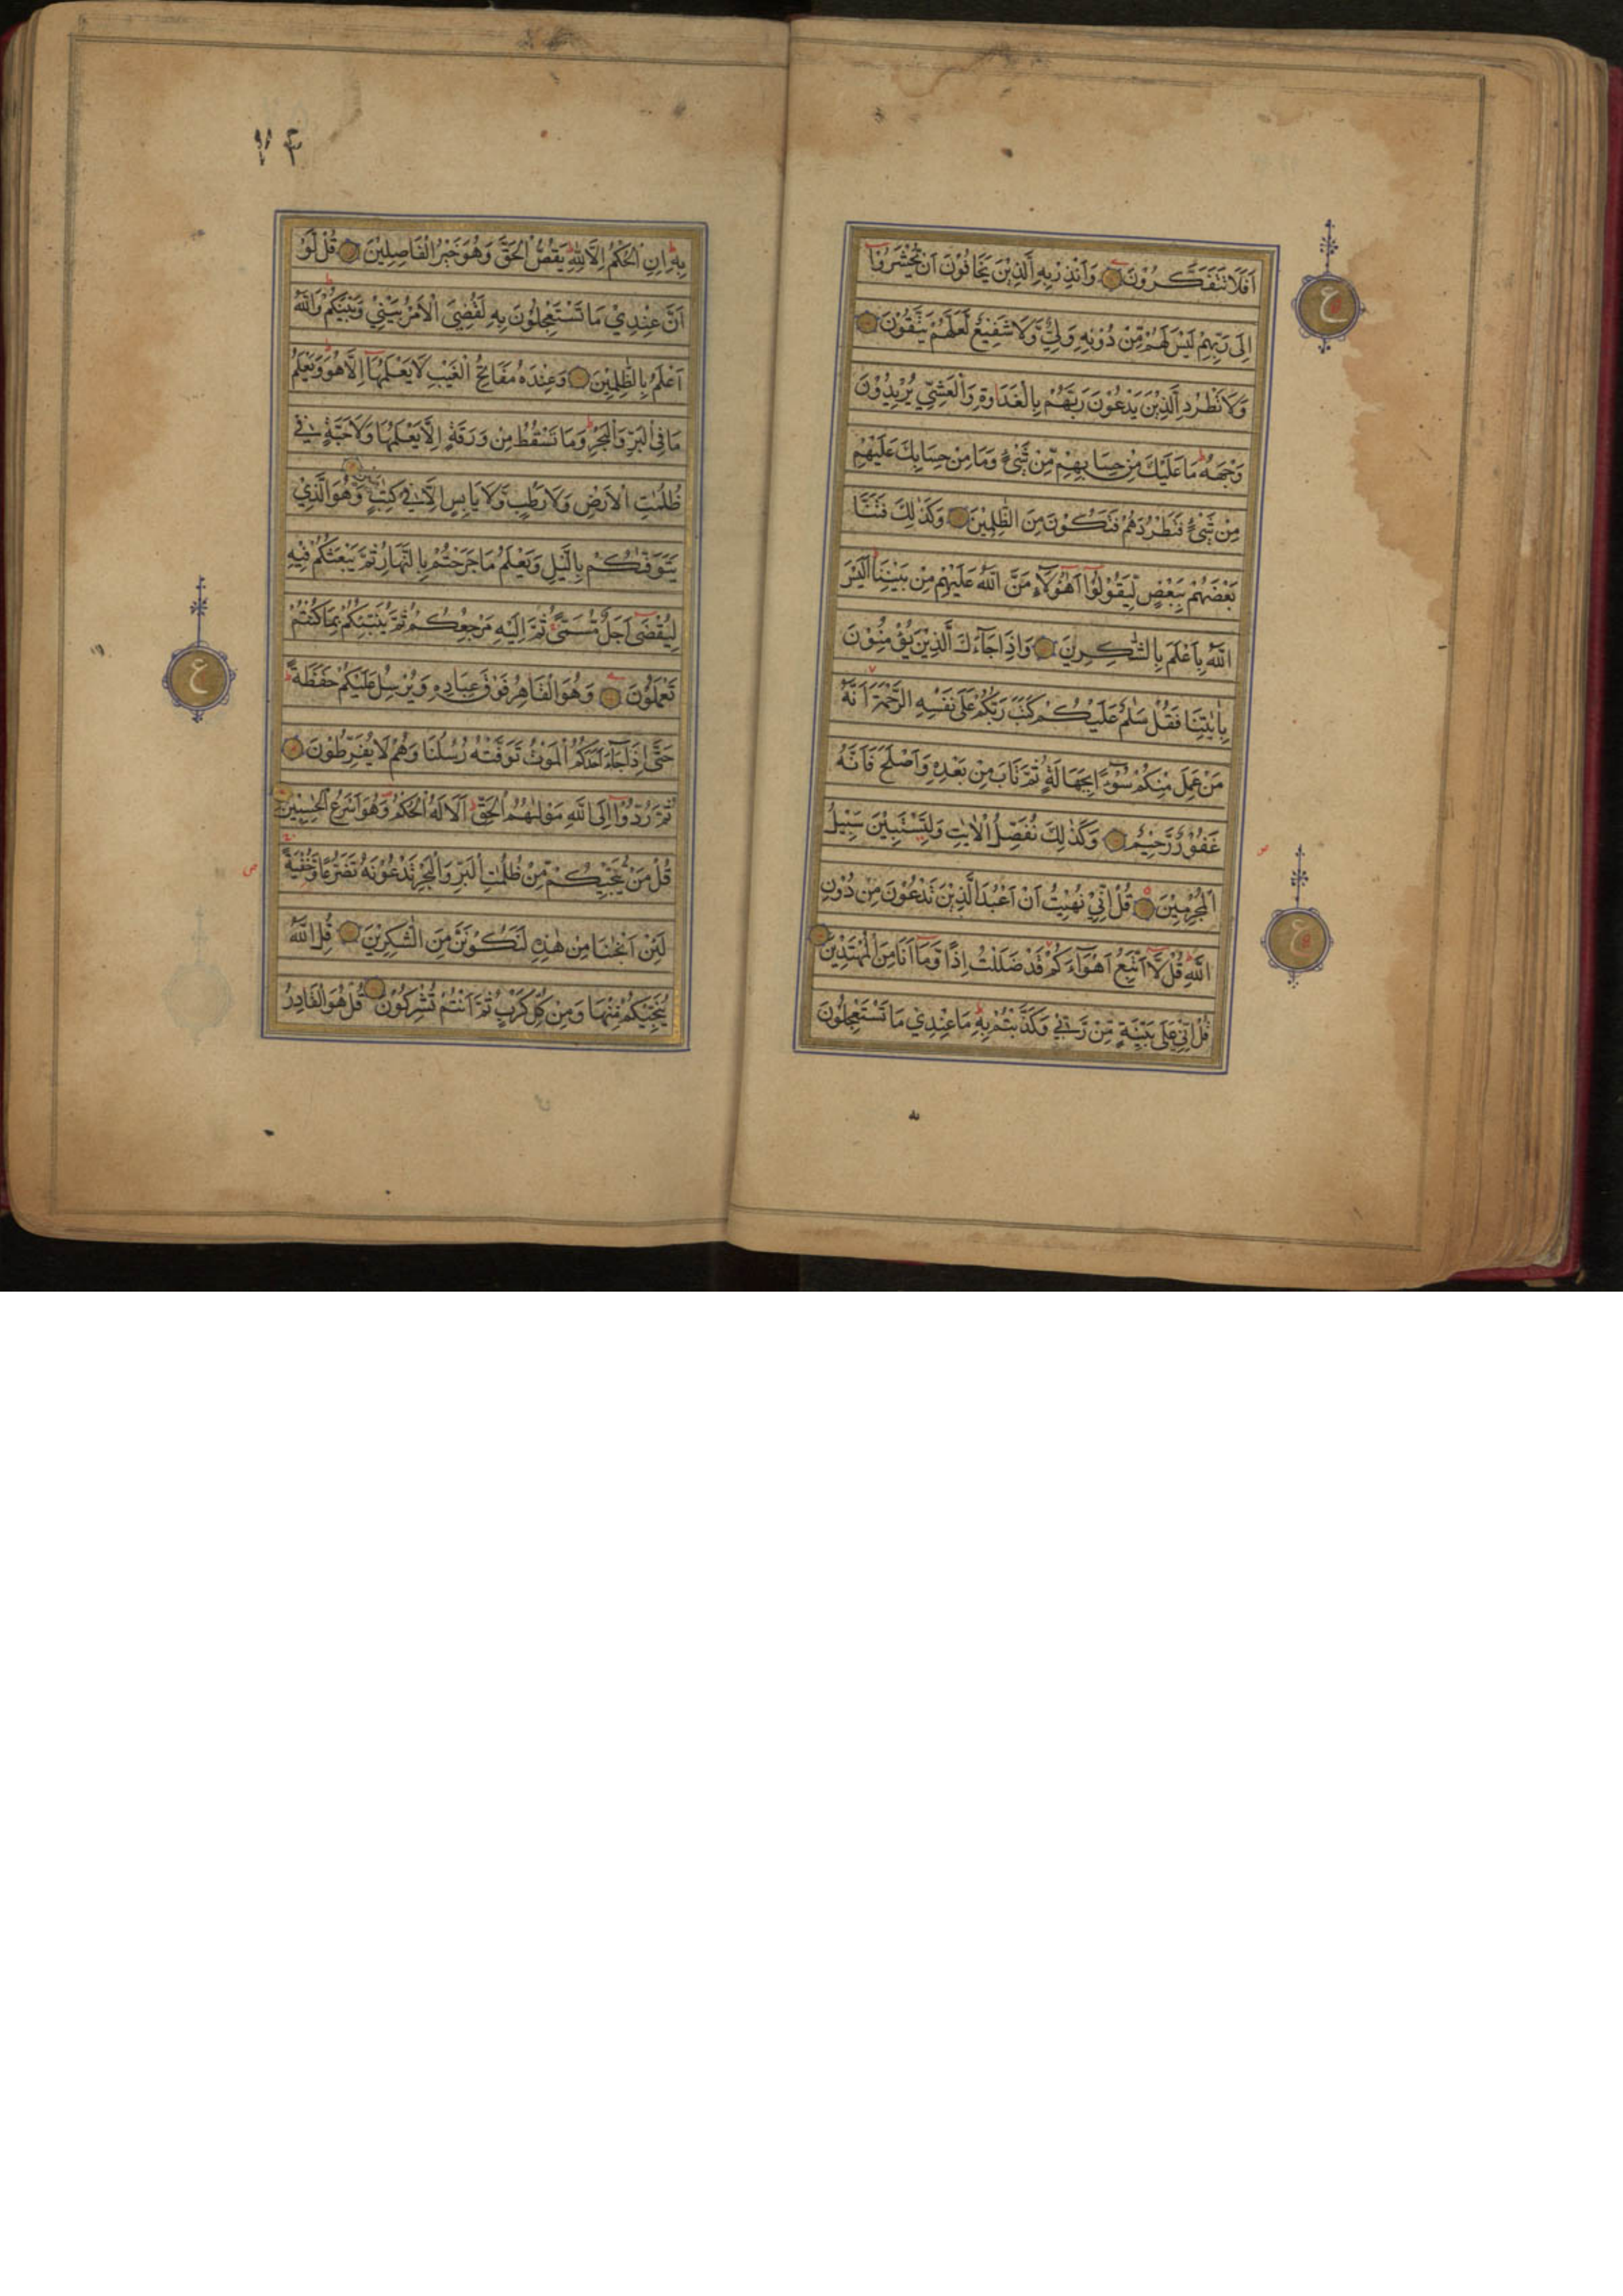 اَفَلَا تَتَفَكَّرُوْنَ وَاَنْذِرْ بِهِ الَّذِيْنَ يَخَافُوْنَ اَنْ يُّحْشَرُوْٓا
اِلٰى رَبِّهِمْ لَيْسَ لَهُمْ مِّنْ دُوْنِهٖ وَلِيٌّ وَّلَا شَفِيْعٌ لَّعَلَّهُمْ يَتَّقُوْنَ
وَلَا تَطْرُدِ الَّذِيْنَ يَدْعُوْنَ رَبَّهُمْ بِالْغَدٰوةِ وَالْعَشِيِّ يُرِيْدُوْنَ
وَجْهَهٗ ط مَا عَلَيْكَ مِنْ حِسَابِهِمْ مِّنْ شَيْءٍ وَّمَا مِنْ حِسَابِكَ عَلَيْهِمْ
مِنْ شَيْءٍ فَتَطْرُدَهُمْ فَتَكُوْنَ مِنَ الظّٰلِمِيْنَ وَكَذٰلِكَ فَتَنَّا
بَعْضَهُمْ بِبَعْضٍ لِّيَقُوْلُوْٓا اَهٰٓؤُلَآءِ مَنَّ اللّٰهُ عَلَيْهِمْ مِنْ بَيْنِنَا ط اَلَيْسَ
اللّٰهُ بِاَعْلَمَ بِالشّٰكِرِيْنَ وَاِذَا جَآءَكَ الَّذِيْنَ يُؤْمِنُوْنَ
بِاٰيٰتِنَا فَقُلْ سَلٰمٌ عَلَيْكُمْ كَتَبَ رَبُّكُمْ عَلٰى نَفْسِهِ الرَّحْمَةَ اَنَّهٗ
مَنْ عَمِلَ مِنْكُمْ سُوْٓءًا بِجَهَالَةٍ ثُمَّ تَابَ مِنْ بَعْدِهٖ وَاَصْلَحَ فَاَنَّهٗ
غَفُوْرٌ رَّحِيْمٌ وَكَذٰلِكَ نُفَصِّلُ الْاٰيٰتِ وَلِتَسْتَبِيْنَ سَبِيْلُ
الْمُجْرِمِيْنَ قُلْ اِنِّيْ نُهِيْتُ اَنْ اَعْبُدَ الَّذِيْنَ تَدْعُوْنَ مِنْ دُوْنِ
اللّٰهِ ط قُلْ لَّآ اَتَّبِعُ اَهْوَآءَكُمْ قَدْ ضَلَلْتُ اِذًا وَّمَآ اَنَا مِنَ الْمُهْتَدِيْنَ
قُلْ اِنِّيْ عَلٰى بَيِّنَةٍ مِّنْ رَّبِّيْ وَكَذَّبْتُمْ بِهٖ ط مَا عِنْدِيْ مَا تَسْتَعْجِلُوْنَ
ع
ع
بِهٖ ط اِنِ الْحُكْمُ اِلَّا لِلّٰهِ ط يَقُصُّ الْحَقَّ وَهُوَ خَيْرُ الْفَاصِلِيْنَ قُلْ لَّوْ
اَنَّ عِنْدِيْ مَا تَسْتَعْجِلُوْنَ بِهٖ لَقُضِيَ الْاَمْرُ بَيْنِيْ وَبَيْنَكُمْ ط وَاللّٰهُ
اَعْلَمُ بِالظّٰلِمِيْنَ وَعِنْدَهٗ مَفَاتِحُ الْغَيْبِ لَا يَعْلَمُهَآ اِلَّا هُوَ ط وَيَعْلَمُ
مَا فِي الْبَرِّ وَالْبَحْرِ ط وَمَا تَسْقُطُ مِنْ وَرَقَةٍ اِلَّا يَعْلَمُهَا وَلَا حَبَّةٍ فِيْ
ظُلُمٰتِ الْاَرْضِ وَلَا رَطْبٍ وَّلَا يَابِسٍ اِلَّا فِيْ كِتٰبٍ مُّبِيْنٍ وَهُوَ الَّذِيْ
يَتَوَفّٰىكُمْ بِالَّيْلِ وَيَعْلَمُ مَا جَرَحْتُمْ بِالنَّهَارِ ثُمَّ يَبْعَثُكُمْ فِيْهِ
لِيُقْضٰٓى اَجَلٌ مُّسَمًّى ثُمَّ اِلَيْهِ مَرْجِعُكُمْ ثُمَّ يُنَبِّئُكُمْ بِمَا كُنْتُمْ
تَعْمَلُوْنَ وَهُوَ الْقَاهِرُ فَوْقَ عِبَادِهٖ وَيُرْسِلُ عَلَيْكُمْ حَفَظَةً ط
حَتّٰٓى اِذَا جَآءَ اَحَدَكُمُ الْمَوْتُ تَوَفَّتْهُ رُسُلُنَا وَهُمْ لَا يُفَرِّطُوْنَ
ثُمَّ رُدُّوْٓا اِلَى اللّٰهِ مَوْلٰىهُمُ الْحَقِّ ط اَلَا لَهُ الْحُكْمُ وَهُوَ اَسْرَعُ الْحٰسِبِيْنَ
قُلْ مَنْ يُّنَجِّيْكُمْ مِّنْ ظُلُمٰتِ الْبَرِّ وَالْبَحْرِ تَدْعُوْنَهٗ تَضَرُّعًا وَّخُفْيَةً
لَئِنْ اَنْجٰىنَا مِنْ هٰذِهٖ لَنَكُوْنَنَّ مِنَ الشّٰكِرِيْنَ قُلِ اللّٰهُ
يُنَجِّيْكُمْ مِّنْهَا وَمِنْ كُلِّ كَرْبٍ ثُمَّ اَنْتُمْ تُشْرِكُوْنَ قُلْ هُوَ الْقَادِرُ
ع